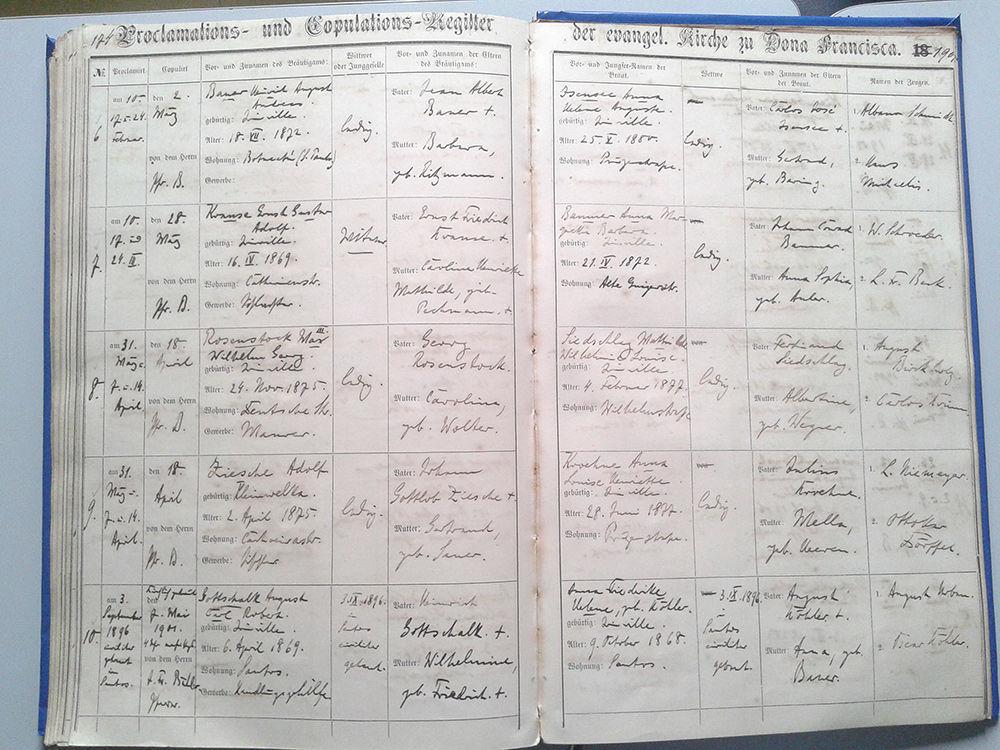 174 Proclamations- und Copulations-Register
der evangel. Kirche zu Dona Francisca. 1901.
№ Proclamirt Copulirt Vor- und Zunamen des Bräutigams: Wittwer oder Junggeselle Vor- und Zunamen der Eltern des Bräutigams:
Vor- und Jungfer-Namen der Braut. Wittwe Vor- und Zunamen der Eltern der Braut. Namen der Zeugen.
6
am 10.
17. u. 24.
Februar.
den 2.
März
von dem Herrn
Pfr. B.
Bauer Ulrich August
Andreas
gebürtig: Joinville.
Alter: 18. VII. 1872.
Wohnung: (S. Paulo)
Gewerbe:
ledig.
Vater: Jean Albert
Bauer +
Mutter: Barbara,
geb. Ritzmann.
Isensee Anna
Helene Auguste.
gebürtig: Joinville.
Alter: 25. V. 1880.
Wohnung:
ledig.
Vater: Carlos José
Isensee +.
Mutter: Gertrud,
geb. Baring.
1. Albano Schmidt
2. Hans
Michaelis.
7
am 10.
17. und
24. III
den 28.
März
von dem Herrn
Pfr. B.
Krause Ernst Gustav
Adolf.
gebürtig: Joinville.
Alter: 16. IV. 1869.
Wohnung: Catharinenstr.
Gewerbe:
Wittwer
Vater: Ernst Friedrich
Krause. +
Mutter: Caroline Henriette
Mathilde, geb.
Pechmann. +
Bammer Anna Mar-
gretha Barbara.
gebürtig: Joinville.
Alter: 21. IV. 1872.
Wohnung: Alte
ledig.
Vater: Johann Conrad
Bammer.
Mutter: Anna Sophia,
geb.
1. W. Schroeder.
2. L. Fr. Beck.
8
am 31.
März.
7. u. 14.
April.
den 18.
April
von dem Herrn
Pfr. B.
Rosenstock Max
Wilhelm Georg.
gebürtig: Joinville.
Alter: 24. Nov. 1875.
Wohnung: Deutsche Str.
Gewerbe: Maurer.
ledig.
Vater: Georg
Rosenstock.
Mutter: Carolina,
geb. Wolter.
Siedschlag
Wilhelmine Louise.
gebürtig: Joinville.
Alter: 4. Februar 1877.
Wohnung: Wilhelmstrasse
ledig.
Vater: Ferdinand
Siedschlag.
Mutter: Albertine,
geb. Wegner.
1. August
Birckholz.
2. Carlos
9.
am 31.
März u.
7. u. 14.
April.
den 18.
April
von dem Herrn
Pfr. B.
Ziesche Adolf
gebürtig: Kleinwelka.
Alter: 2. April 1875.
Wohnung:
Gewerbe:
ledig.
Vater: Johann
Gottlob Ziesche +.
Mutter: Gertraud,
geb. Sauer.
Kroehne Anna
Louise Henriette
gebürtig: Joinville.
Alter: 28. Juni 1877.
Wohnung:
ledig.
Vater: Julius
Kroehne.
Mutter: Mella,
geb.
1. L. Niemeyer.
2. Ottokar
Dörffel.
10
am 3.
September
1896
civiliter
getraut
in
Santos.
den
7. Mai
1901.
von dem Herrn
Pfarrer.
Gottschalk August
Carl Robert.
gebürtig: Joinville.
Alter: 6. April 1869.
Wohnung: Santos.
Gewerbe: Handlungsgehülfe.
3. IX. 1896.
in
Santos
civiliter
getraut.
Vater: Heinrich
Gottschalk. +.
Mutter: Wilhelmine,
geb. Friedrich. +
Anna Friedricke
Helene, geb. Köhler.
gebürtig: Joinville.
Alter: 9. October 1868.
Wohnung: Santos.
3. IX. 1896.
in
Santos
civiliter
getraut.
Vater: August
Köhler +.
Mutter: Anna, geb.
Bauer.
1. August Urban.
2. Oscar Köhler.